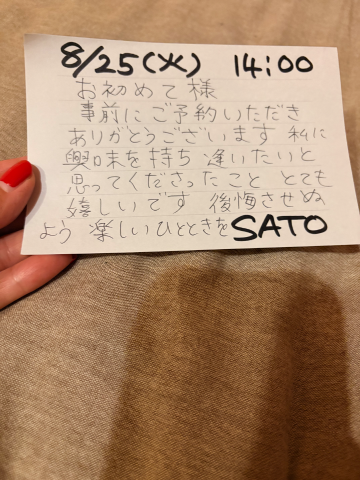 8/25(火) 14:00
お初めて様
事前にご予約いただき
ありがとうございます 私に
興味を持ち 逢いたいと
思ってくださったこと とても
嬉しいです 後悔させぬ
よう 楽しいひとときを SATO